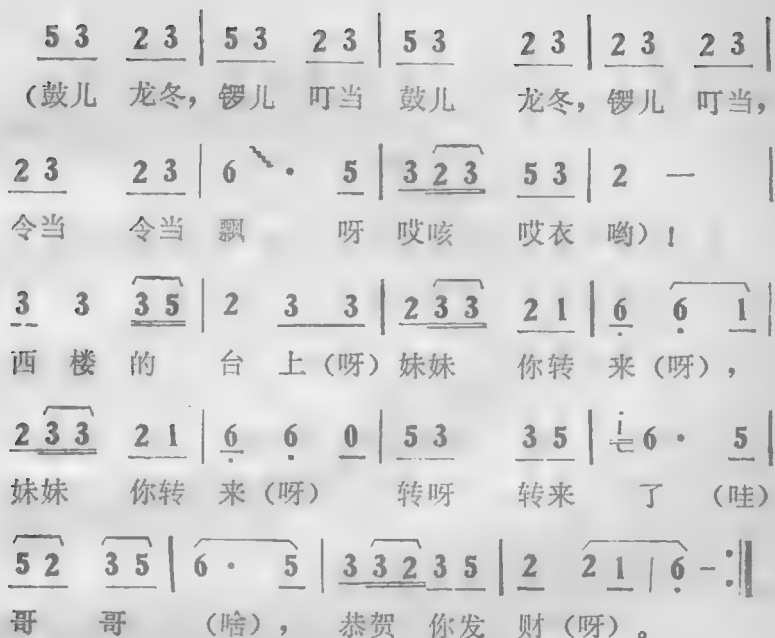 5 3 2 3 | 5 3 2 3 | 5 3 2 3 | 2 3 2 3 |
(鼓儿 龙冬, 锣儿 叮当 鼓儿 龙冬, 锣儿 叮当,
2 3 2 3 | 6 · 5 | 3 2 3 5 3 | 2 — |
令当 令当 飘 呀 哎咳 哎衣 哟)!
3 3 3 5 | 2 3 3 | 2 3 3 2 1 | 6 6 1 |
西 楼 的 台 上 (呀) 妹妹 你转 来 (呀),
2 3 3 2 1 | 6 6 0 | 5 3 3 5 | i 6 · 5 |
妹妹 你转 来 (呀) 转呀 转来 了 (哇)
5 2 3 5 | 6 · 5 | 3 3 2 3 5 | 2 2 1 | 6 - :‖
哥 哥 (啥), 恭贺 你发 财 (呀)。